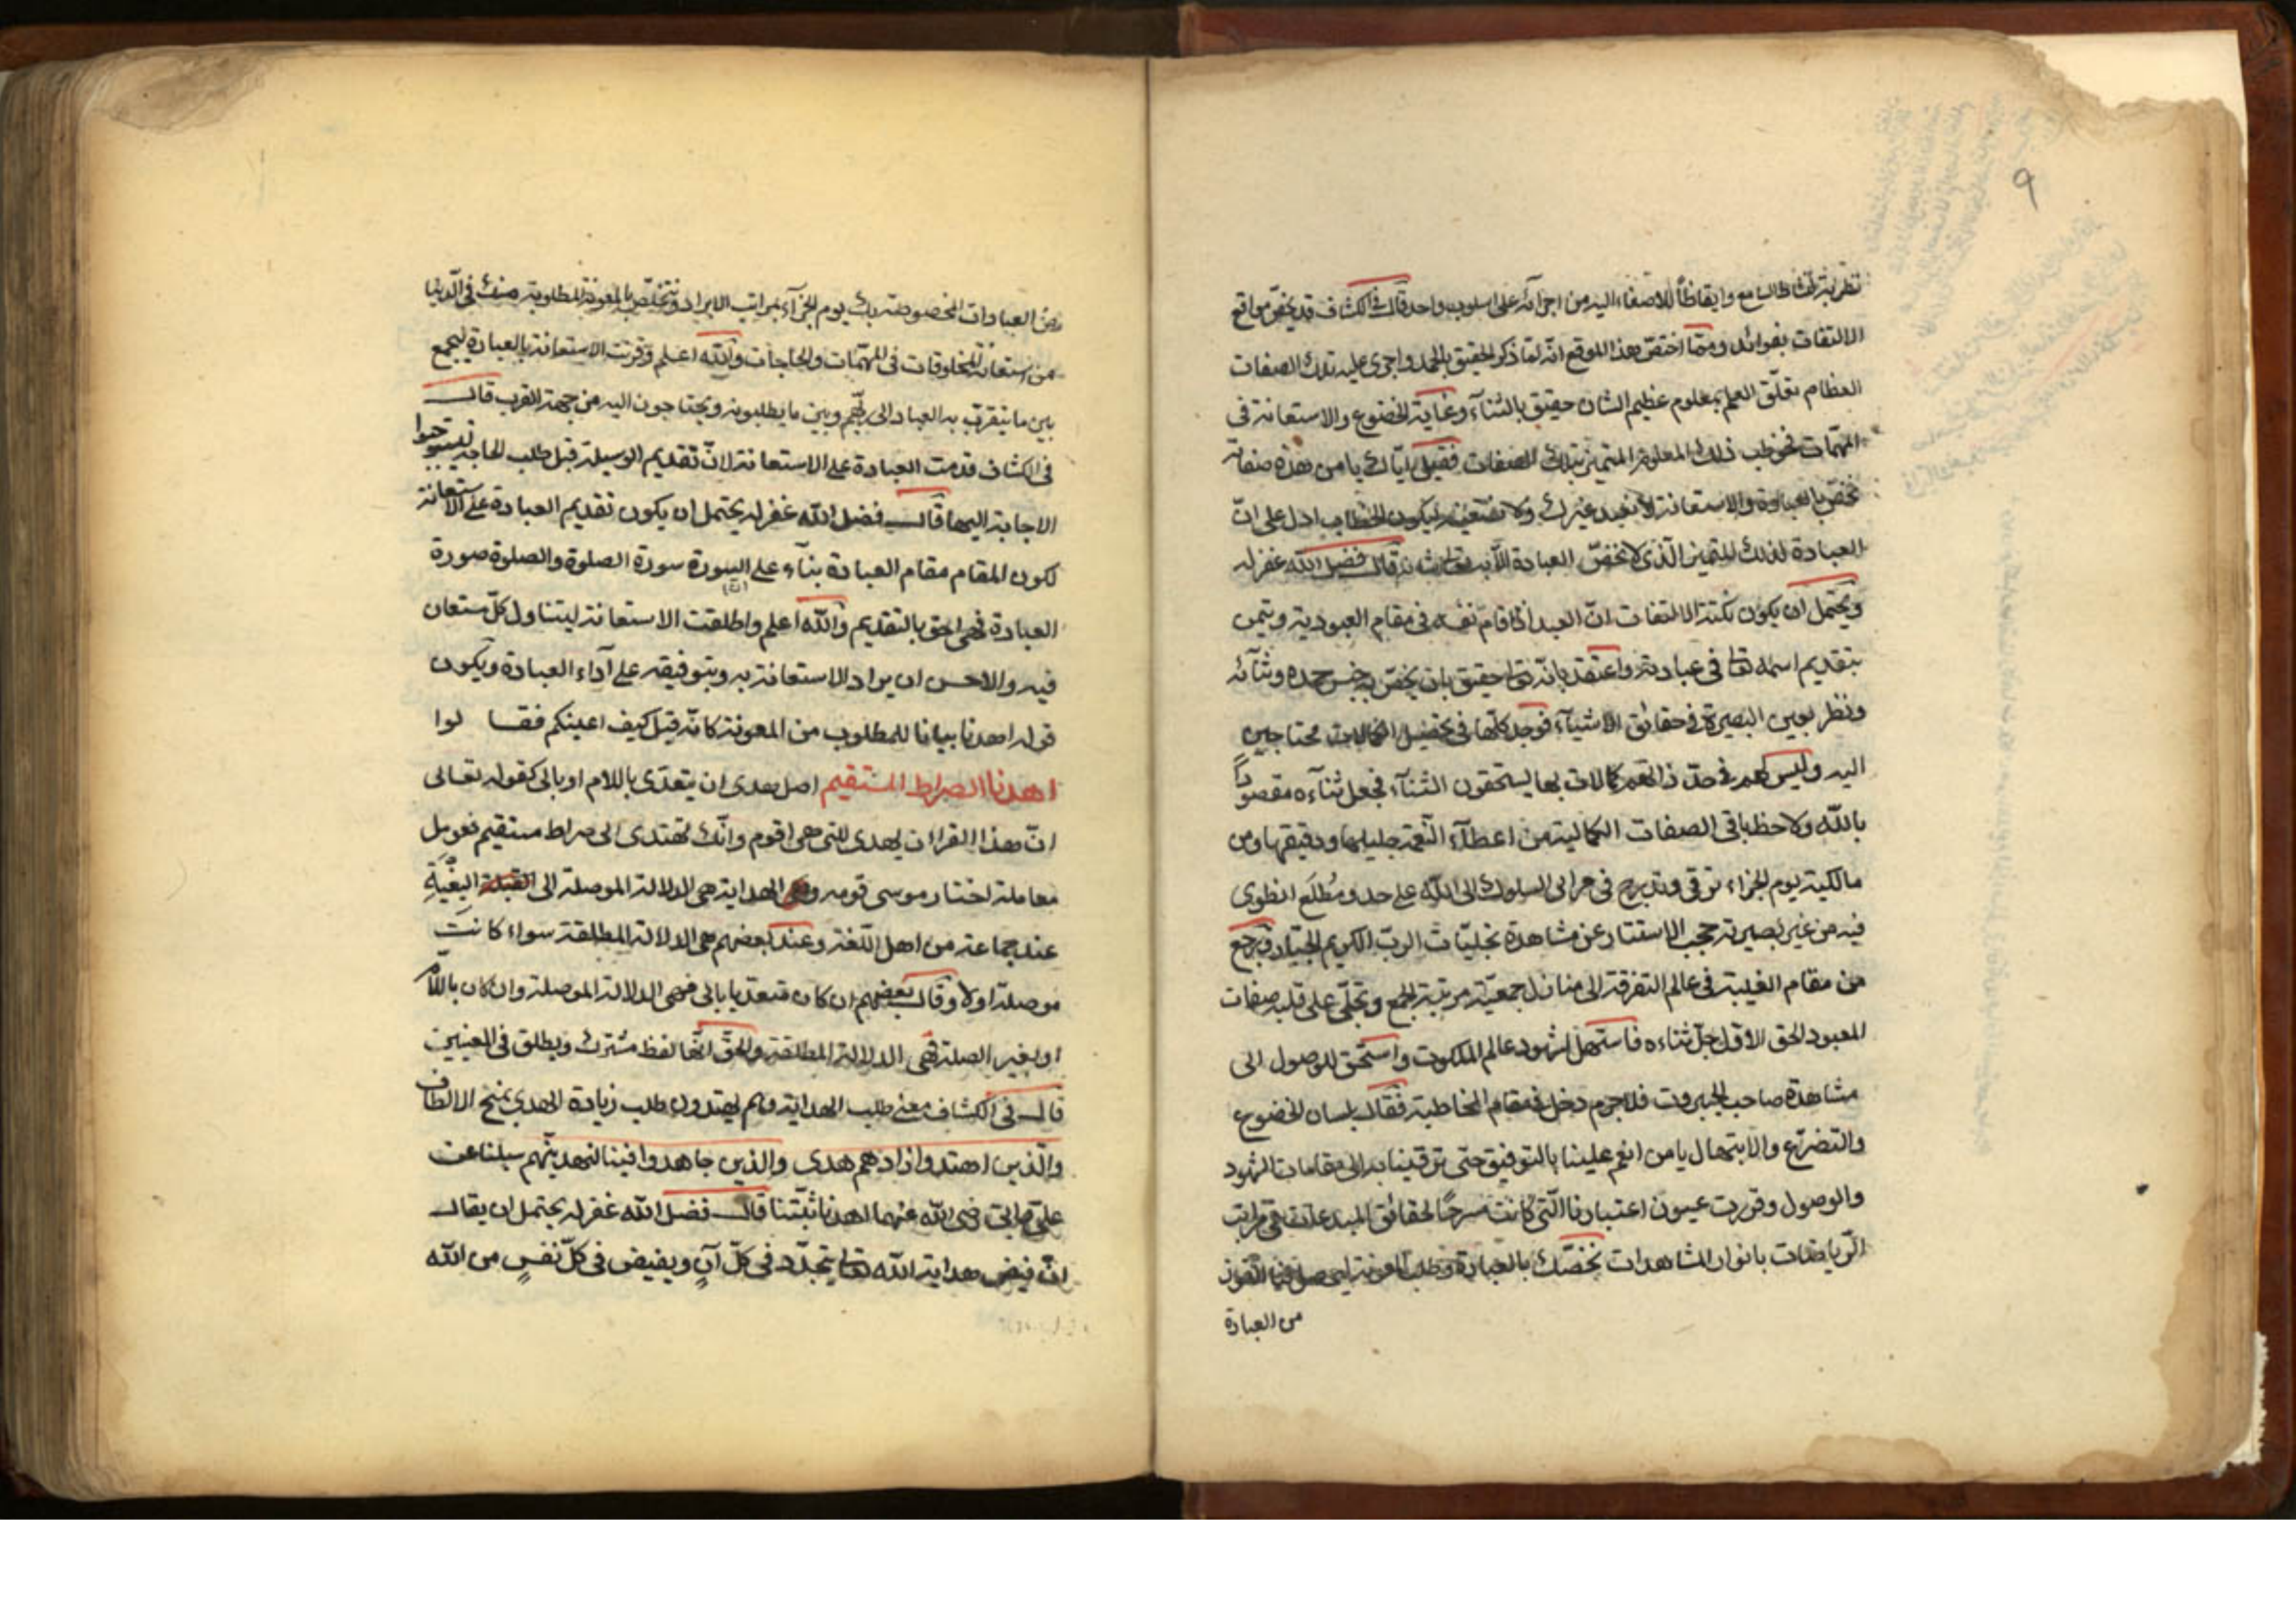 ٩
تطرية لنشاط السامع وايقاظاً للاصغاء اليه من اجرآئه على اسلوب واحد قال فى الكشاف قد يختص مواقع
الالتفات بفوائد ومما اختص هذا الموقع انه لما ذكر الحقيق بالحمد واجرى عليه تلك الصفات
العظام تعلّق العلم بمعلوم عظيم الشان حقيق بالثنآء وغاية الخضوع والاستعانة فى
المهمّات فخوطب ذلك المعلوم المتميز بتلك الصفات فقيل ايّاك يا من هذه صفاته
نخصّ بالعبادة والاستعانة لا نعبد غيرك ولا نستعينه ليكون الخطاب ادل على انّ
العبادة لذلك المتميز الّذى لا تخصّ العبادة الّا به قال فضل الله غفر له
ويحتمل ان يكون نكتة الالتفات انّ العبد اذا قام نفسه فى مقام العبودية وتيمن
بتقديم اسمه تعا فى عبادته واعتقد بانه تعا حقيق بان يخصّ به جنس حمده وثنآئه
ونظر بعين البصيرة فى حقائق الاشيآء فوجد كلّها فى تحصيل الكمالات محتاجين
اليه وليس لهم فى حدّ ذاتهم كمالات بها يستحقون الثنآء فجعل ثناءه مقصوداً
بالله ولاحظ باقى الصفات الكمالية من اعطآء النّعم جليلها ودقيقها ومن
مالكية يوم الجزاء ترقى وتدرج فى مراقى السلوك الى الله على حد ومُطلَع انطوى
فيه من غير بصيرته حجب الاستتار عن مشاهدة تجليّات الربّ الكريم الجبّار فرجع
من مقام الغيبة فى عالم التفرقة الى منازل جمعيّة مرتبة الجمع وتجلّى على قلبه صفات
المعبود الحق الاوّل جلّ ثناءه فاستهل لشهود عالم الملكوت واستحق للوصول الى
مشاهدة صاحب الجبروت فلا جرم دخل فى مقام المخاطبة فقال بلسان الخضوع
والتضرّع والابتهال يا من انعم علينا بالتوفيق حتى ترقينا به الى مقامات الشهود
والوصول وقررت عيون اعتبارنا الّتى كانت مسرحًا لحقائق المبدعات فى مراتب
الرّياضات بانوار المشاهدات نخصّك بالعبادة وطلب المعونة
من العبادة
العبادات المخصوصة بك يوم الجزآء بمراتب الايراد ونتخلّص بالمعونة المطلوبة منك فى الدّنيا
من استعانة المخلوقات فى المهمّات والحاجات والله اعلم وقرنت الاستعانة بالعبادة ليجمع
بين ما يتقرّب به العباد الى ربّهم وبين ما يطلبونه ويحتاجون اليه من جهة القرب قال
فى الكشاف قدمت العبادة على الاستعانة لانّ تقديم الوسيلة قبل طلب الحاجة ليستوجبوا
الاجابة اليها قال فضل الله غفر له يحتمل ان يكون تقديم العبادة على الاستعانة
لكون المقام مقام العبادة بنآء على السورة سورة الصلوة والصلوة صورة
العبادة فهى احق بالتقديم والله اعلم واطلقت الاستعانة ليتناول كلّ مستعان
فيه والاحسن ان يراد الاستعانة به وبتوفيقه على آداء العبادة ويكون
قوله اهدنا بيانا للمطلوب من المعونة كانه قيل كيف اعينكم فقا لوا
اهدنا الصراط المستقيم اصل هدى ان يتعدّى باللام او بالى كقوله تعالى
انّ هذا القران يهدى للتى هى اقوم وانّك لتهتدى الى صراط مستقيم فعومل
معاملة اختار موسى قومه وهى الهداية هى الدلالة الموصلة الى القبلة البغْيَةِ
عند جماعة من اهل اللّغة وعند بعضهم هى الدلالة المطلقة سواء كانت
موصلة اولا وقال بعضهم ان كان متعديا بالى فهى الدلالة الموصلة وان كان باللّام
او بغير الصلة فهى الدلالة المطلقة والحقّ انّها لفظ مشترك ويطلق فى المعنيين
قال فى الكشاف معنى طلب الهداية وهم يهتدون طلب زيادة الهدى بمنح الالطاف
والّذين اهتدوا زادهم هدى والذين جاهدوا فينا لنهدينّهم سبلنا عن
علىّ وابىّ رضى الله عنهما اهدنا ثبّتنا قال فضل الله غفر له يحتمل ان يقال
انّ فيض هداية الله تعا يتجدّد فى كلّ آنٍ ويفيض فى كلّ نفسٍ من الله